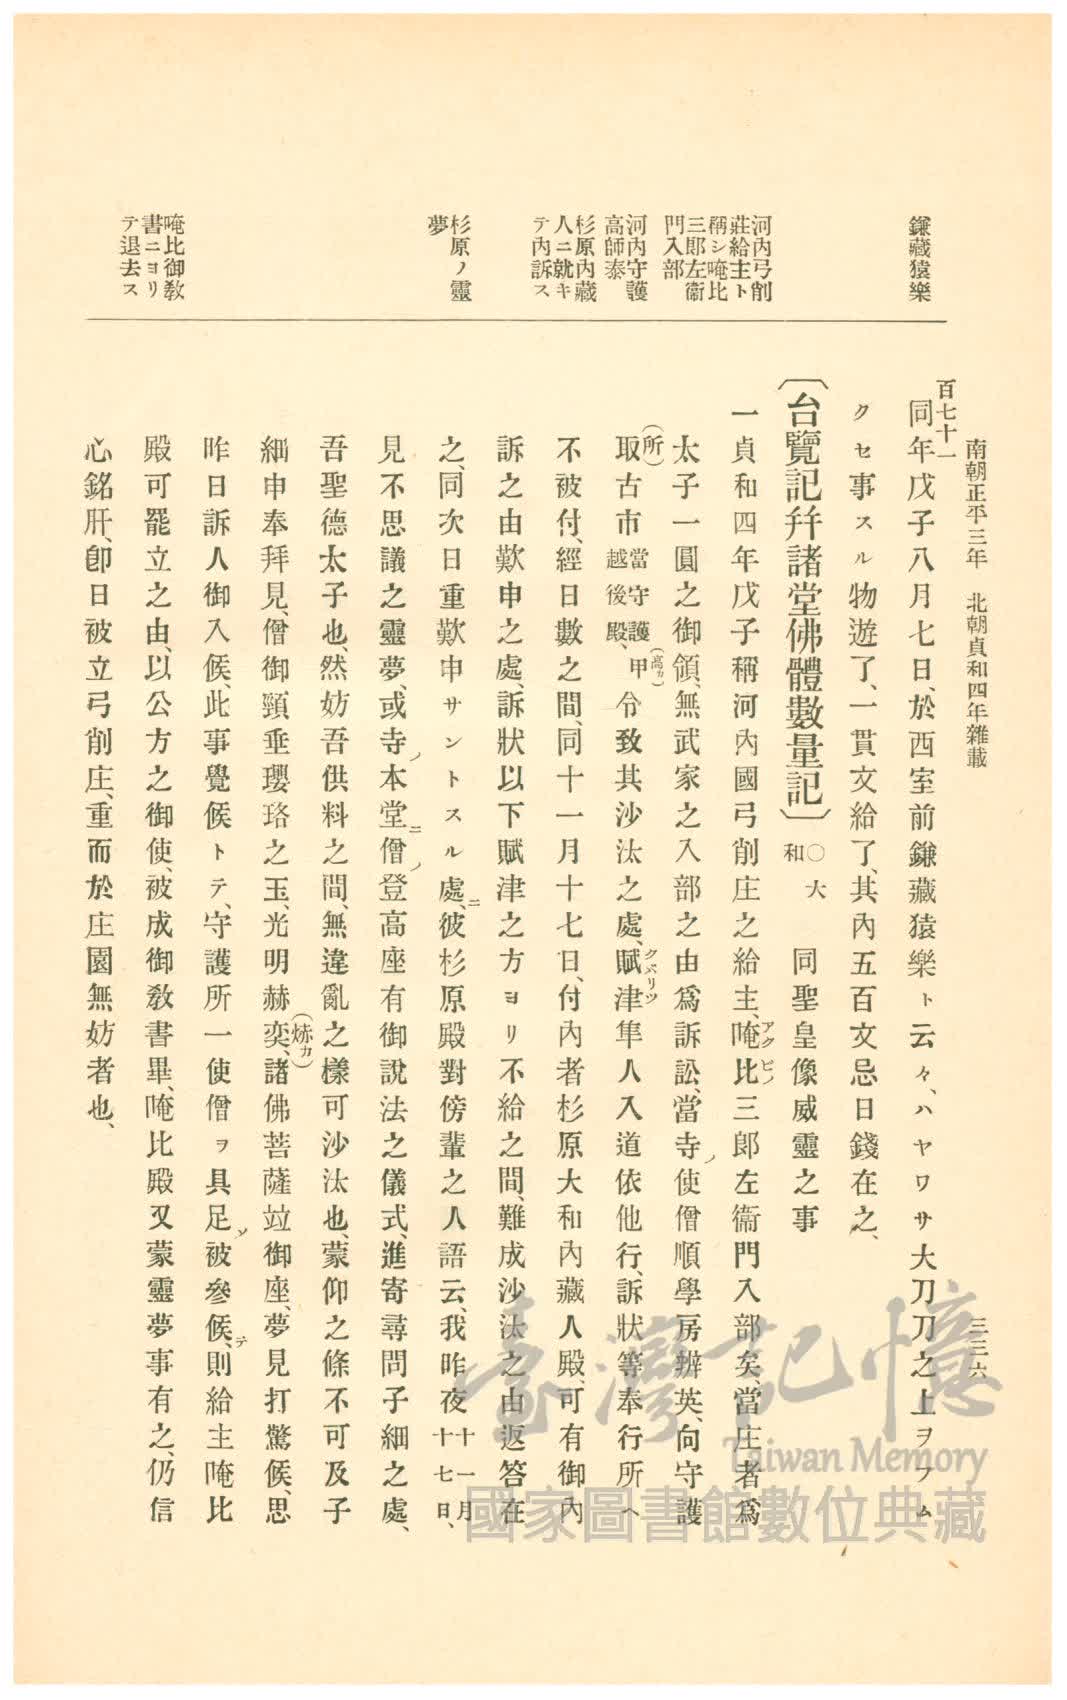 南朝正平三年　北朝貞和四年雜載
三三六
百七十一
鎌藏猿樂
同年戊子八月七日、於西室前鎌藏猿樂ト云々、ハヤワサ大刀刀之上ヲフム
クセ事スル物遊了、一貫文給了、其內五百文忌日錢在之、
河內弓削
莊給主ト
稱シ唵比
三郎左衞
門入部
〔台覽記幷諸堂佛體數量記〕○大和　同聖皇像威靈之事
一貞和四年戊子稱河內國弓削庄之給主、唵比三郎左衞門入部矣、當庄者爲
アクビノ
太子一圓之御領、無武家之入部之由爲訴訟、當寺ノ使僧順學房辨英、向守護
河內守護
高師泰
(所)
取古市當守護越後殿、甲(高カ)令致其沙汰之處、賦津隼人入道依他行、訴狀等奉行所ヘ
クバリツ
杉原內藏
人ニ就キ
テ內訴ス
不被付、經日數之間、同十一月十七日、付內者杉原大和內藏人殿、可有御內
訴之由歎申之處、訴狀以下賦津之方ヨリ不給之間、難成沙汰之由返答在
杉原ノ靈
夢
之、同次日重歎申サントスル處ニ、彼杉原殿對傍輩之人語云、我昨夜十一月十七日、
見不思議之靈夢、或寺ノ本堂ニ僧ノ登高座有御說法之儀式、進寄尋問子細之處、
吾聖德太子也、然妨吾供料之間、無違亂之樣可沙汰也、蒙仰之條不可及子
細申奉拜見、僧御頸垂瓔珞之玉、光明赫奕、諸佛菩薩竝御座、夢見打驚候、思
(焃カ)
昨日訴人御入候、此事覺候トテ、守護所一使僧ヲ具足ソ被參候、テ則給主唵比
唵比御敎
書ニヨリ
テ退去ス
殿可罷立之由、以公方之御使、被成御敎書畢、唵比殿又蒙靈夢事有之、仍信
心銘肝、卽日被立弓削庄、重而於庄園無妨者也、
臺灣記憶
Taiwan Memory
國家圖書館數位典藏